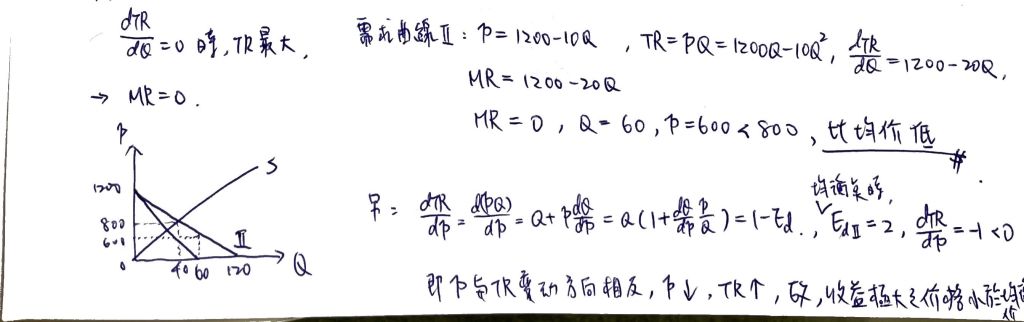 dTR/dQ = 0 時, TR最大,
→ MR = 0.
需求曲線Ⅱ: P = 1200 - 10Q , TR = PQ = 1200Q - 10Q², dTR/dQ = 1200 - 20Q,
MR = 1200 - 20Q
MR = 0 , Q = 60 , P = 600 < 800 , 比均价低 #
P
S
1200
800
600
0
40 60 120
Ⅱ
Q
均衡矣時,
dTR/dP = d(PQ)/dP = Q + P dQ/dP = Q(1 + dQ/dP P/Q) = 1 - Ed . , EdⅡ = 2 , dTR/dP = -1 < 0
即P與TR變动方向相反, P↓, TR↑, 故, 收益極大之价格小於均衡价